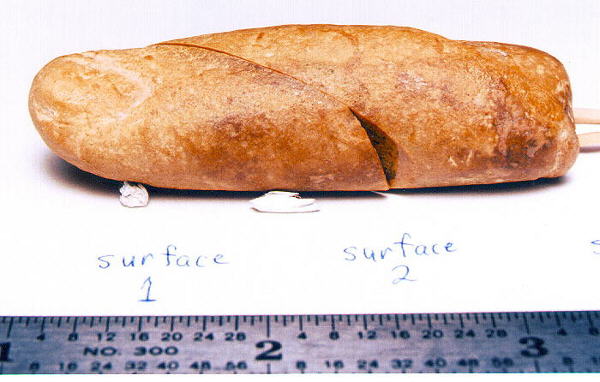 surface
1
surface
2
4 8 12 16 20 24 28 4 8 12 16 20 24 28 4
1 NO. 300 2 3
8 16 24 32 40 48 56 8 16 24 32 40 48 56 8